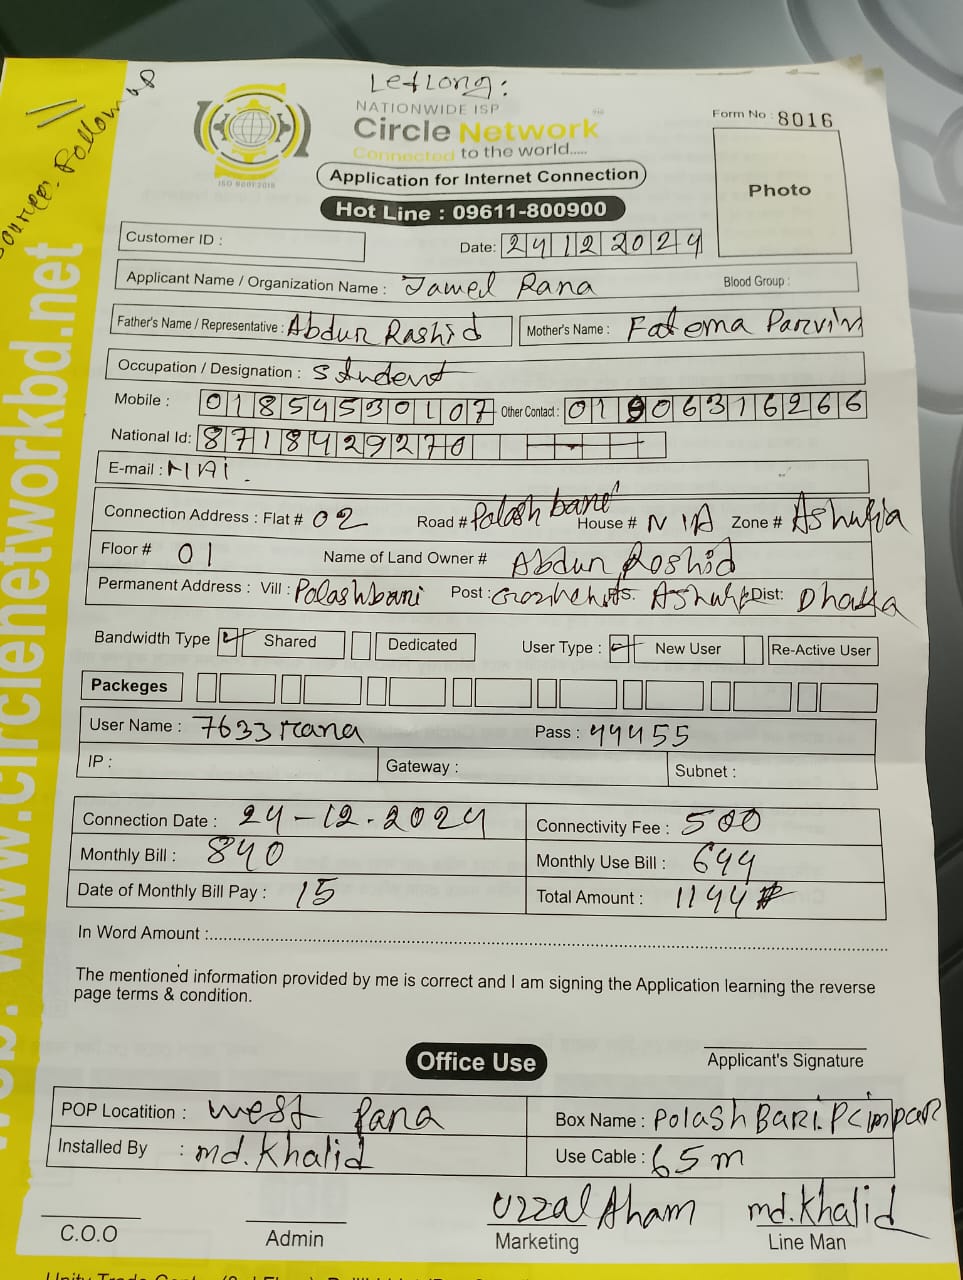 LetLong:
Source-Followup
NATIONWIDE ISP
Circle Network
Connected to the world.....
ISO 9001:2015
Form No : 8016
Photo
Application for Internet Connection
Hot Line : 09611-800900
Customer ID :
Date: 24122024
Applicant Name / Organization Name : Jamel Rana Blood Group :
Father's Name / Representative : Abdur Rashid Mother's Name : Fatema Parvin
Occupation / Designation : Student
Mobile : 01854530107 Other Contact : 01906316266
National Id: 8718429270
E-mail : NAi.
Connection Address : Flat # 02 Road # Polash bari House # N/A Zone # Ashulia
Floor # 01 Name of Land Owner # Abdur Roshid
Permanent Address : Vill : Polashbari Post : Ts. Ashulia Dist: Dhaka
Bandwidth Type Shared Dedicated User Type : New User Re-Active User
Packeges
User Name : 7633rana Pass : 44455
IP : Gateway : Subnet :
Connection Date : 24-12-2024 Connectivity Fee : 500
Monthly Bill : 840 Monthly Use Bill : 644
Date of Monthly Bill Pay : 15 Total Amount : 1144
In Word Amount :
The mentioned information provided by me is correct and I am signing the Application learning the reverse
page terms & condition.
Applicant's Signature
Office Use
POP Locatition : West Para Box Name : Polash Bari.
Installed By : md.Khalid Use Cable : 65m
Uzzal Aham md.Khalid
C.O.O Admin Marketing Line Man
www.circlenetworkbd.net